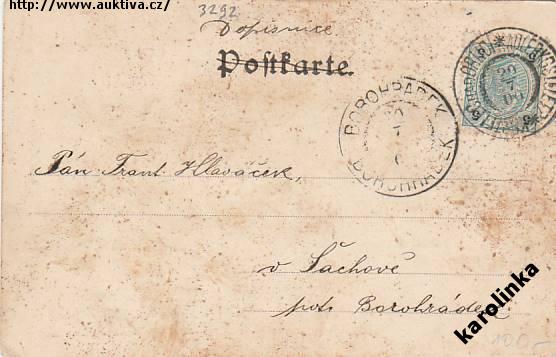 http://www.auktiva.cz/
3292
Dopisnice
Postkarte.
BOROHRADEK
20
7
BOROHRADEK
20
7
Pán Frant Hlaváček,
v Šachově
pošt. Borohrádek
karolinka
100,-